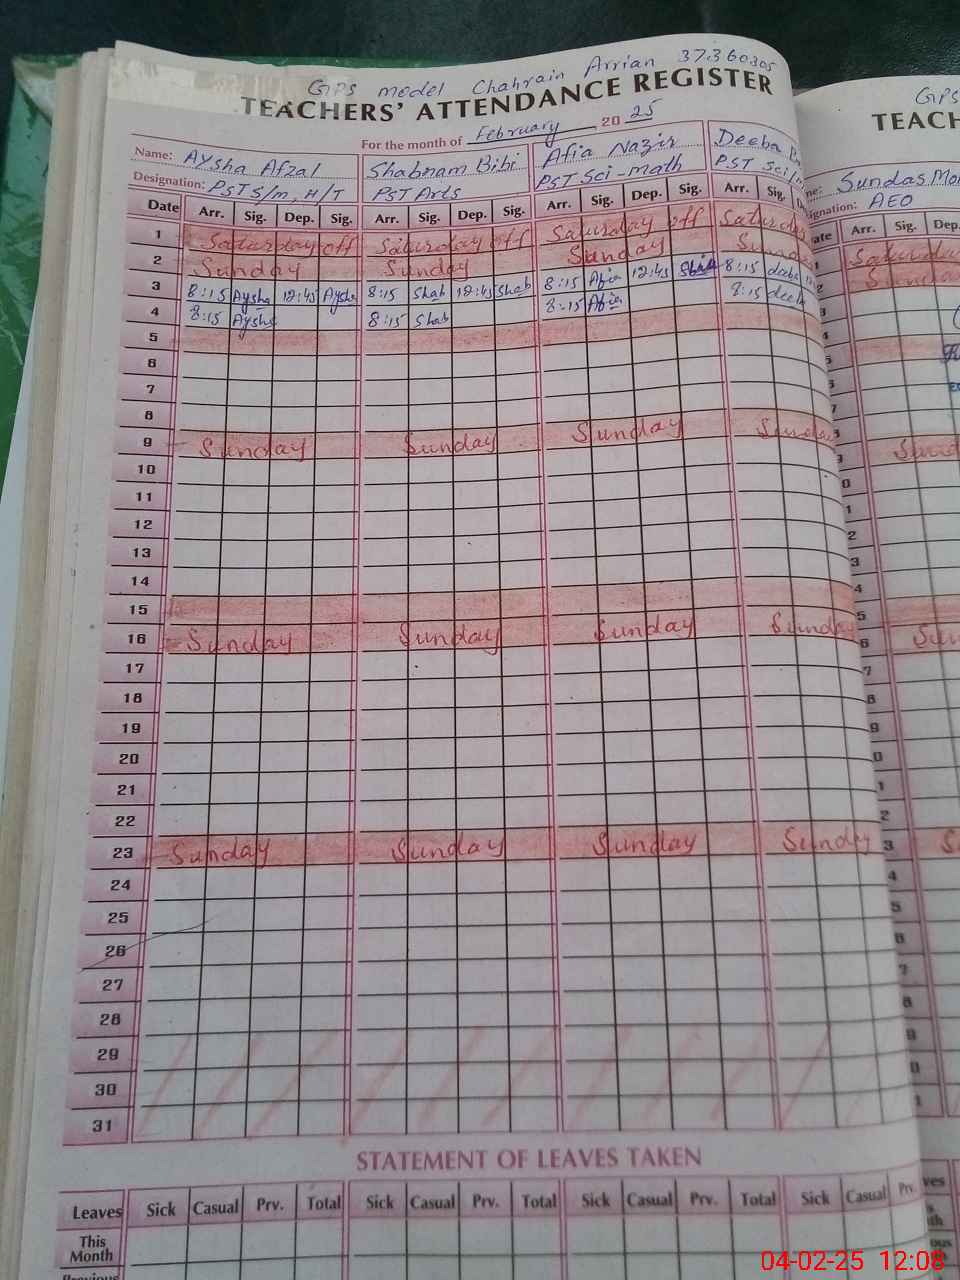 GPS model Chahrain Arrian 37360305
TEACHERS' ATTENDANCE REGISTER
For the month of February 20 25
Name: Aysha Afzal Shabnam Bibi Afia Nazir Deeba
Designation: PST S/m, H/T PST Arts PST Sci-math PST Sci
Date Arr. Sig. Dep. Sig. Arr. Sig. Dep. Sig. Arr. Sig. Dep. Sig. Arr. Sig.
1 Saturday off Saturday off Saturday off Saturday
2 Sunday Sunday Sunday
3 8:15 Aysha 12:45 Aysha 8:15 Shab 12:45 Shab 8:15 Afia 12:45 8:15 deeba
4 8:15 Aysha 8:15 Shab 8:15 Afia 8:15
5
6
7
8
9 Sunday Sunday Sunday Sunday
10
11
12
13
14
15
16 Sunday Sunday Sunday Sunday
17
18
19
20
21
22
23 Sunday Sunday Sunday Sunday
24
25
26
27
28
29
30
31
STATEMENT OF LEAVES TAKEN
Leaves Sick Casual Prv. Total Sick Casual Prv. Total Sick Casual Prv. Total Sick Casual Prv.
This Month
GPS
TEACH
Sundas
AEO
Arr. Sig. Dep.
04-02-25 12:08